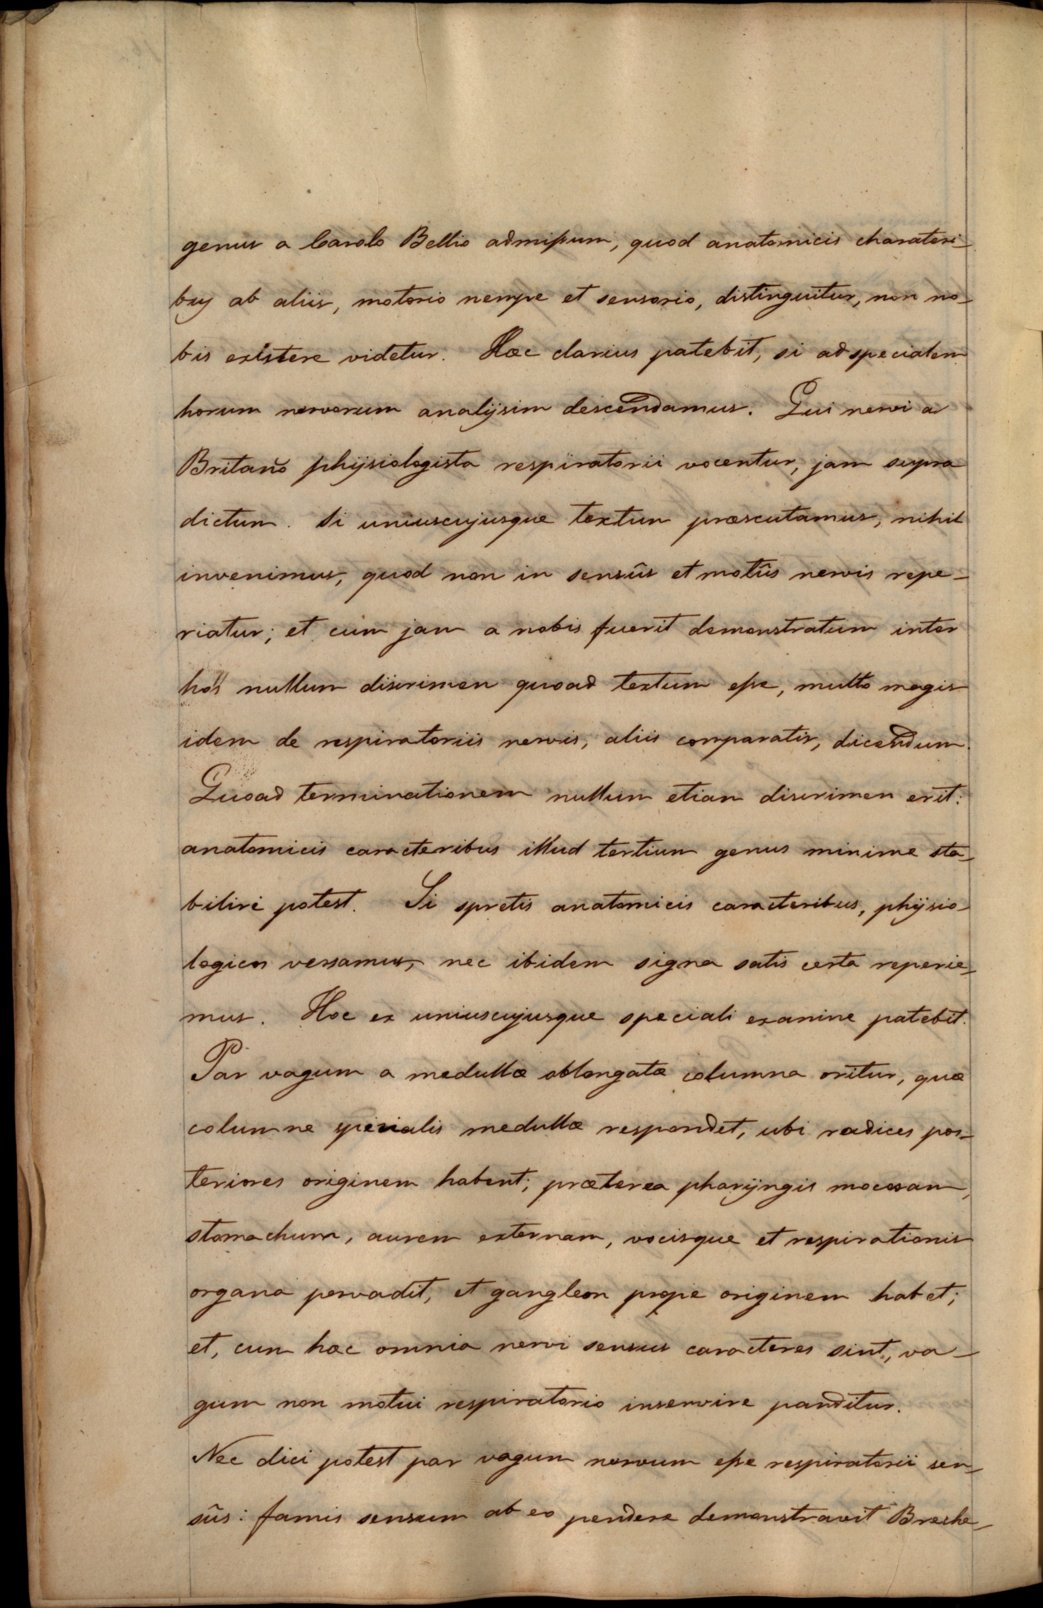 genus a Carolo Bellio admissum, quod anatomicis charateri-
bus ab aliis, motorio nempe et sensorio, distinguitur, non no-
bis existere videtur. Hoc clarius patebit, si ad specialem
horum nervorum analijsim descendamus. Qui nervi a
Britano phijsiologista respiratorii vocentur, jam supra
dictum. Si uniuscujusque textum præscutamus, nihil
invenimus, quod non in sensûs et motûs nervis repe-
riatur; et cum jam a nobis fuerit demonstratum inter
hos nullum discrimen quoad textum esse, multo magis
idem de respiratoriis nervis, aliis comparatis, dicendum.
Quoad terminationem nullum etiam discrimen erit:
anatomicis caracteribus illud tertium genus minime sta-
biliri potest. Si spretis anatomicis caracteribus, phijsio-
logicos versamur, nec ibidem signa satis certa reperie-
mus. Hoc ex uniuscujusque speciali examine patebit.
Par vagum a medullæ oblongatæ columna oritur, quæ
columne spinialis medullæ respondet, ubi radices pos-
teriores originem habent; præterea pharijngis mocosam,
stomachum, aurem externam, vocisque et respirationis
organa pervadit, et gangleon prope originem habet;
et, cum hæc omnia nervi sensus caracteres sint, va-
gum non motui respiratorio inservire panditur.
Nec dici potest par vagum nervum esse respiratorii sen-
sûs: famis sensum ab eo pendere demonstravit Breshe-